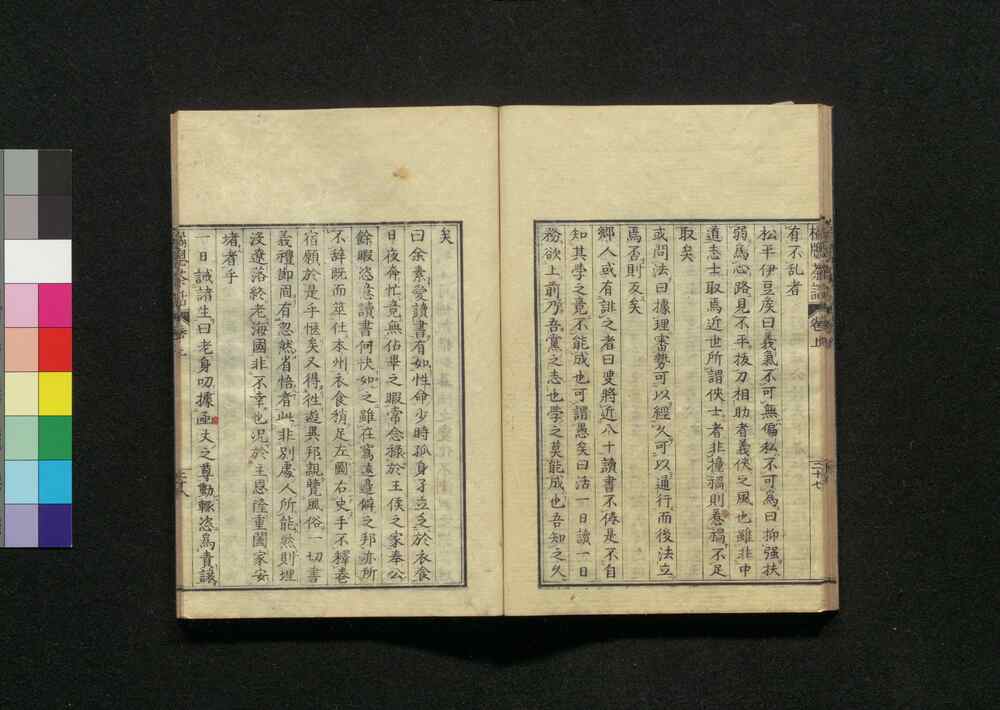 有不乱者
松平伊豆矦曰義氣不可無偏私不可為曰抑强扶
弱為心路見不平拔刀相助者義俠之風也雖非中
道志士取焉近世所謂俠士者非撞禍則惹禍不足
取矣
或問法曰據理審勢可以經久可以通行而後法立
焉否則反矣
鄉人或有誹之者曰叟將近八十讀書不倦是不自
知其學之竟不能成也可謂愚矣曰活一日讀一日
務欲上前乃吾黨之志也學之莫能成也吾知之久
卷上
三十七
矣
曰余素愛讀書有如性命少時孤身孑立乏於衣食
日夜奔忙竟無佔畢之暇常念祿於王侯之家奉公
餘暇恣意讀書何快如之雖在寫遠邊僻之邦亦所
不辭既而筮仕本州衣食稍足左圖右史手不釋卷
宿願於是乎愜矣又得徃遊異邦親覽風俗一切書
義禮節固有忽然省悟者此非別處人所能然則埋
沒遼落終老海國非不幸也况於主恩隆重闔家安
堵者乎
一日誡諸生曰老身叨據函丈之尊動輒恣為責讓
三十八